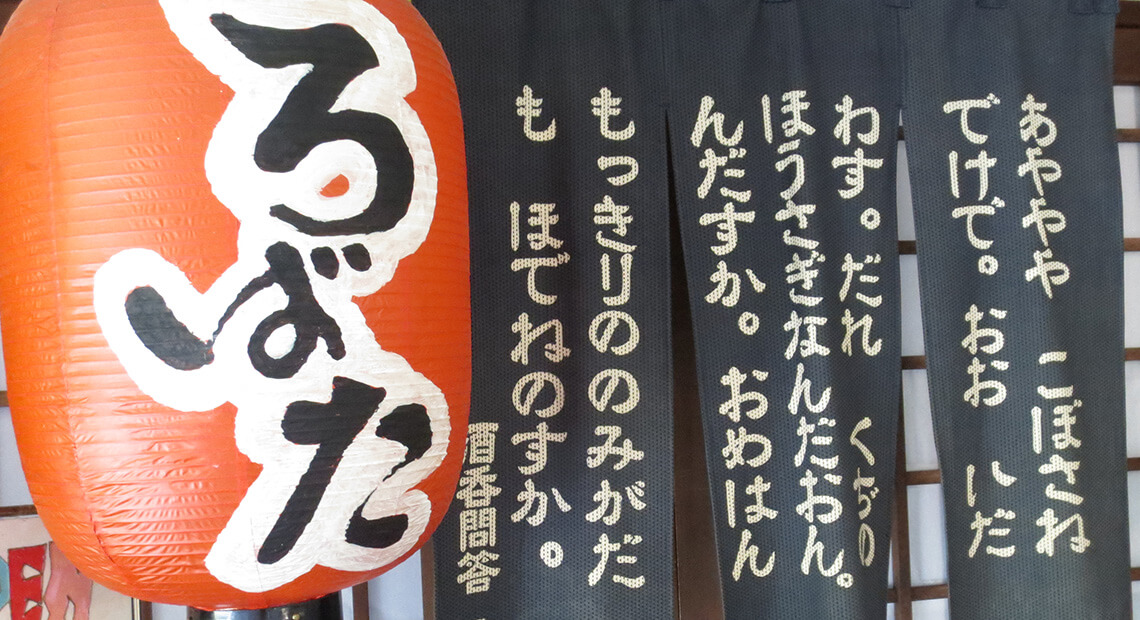 あややや　こぼさね
でけで。おお　いだ
わす。だれ　くぢの
ほうさぎなんだおん。
んだすか。おめはん
もっきりののみがだ
も　ほでねのすか。
酒呑問答
ろばた